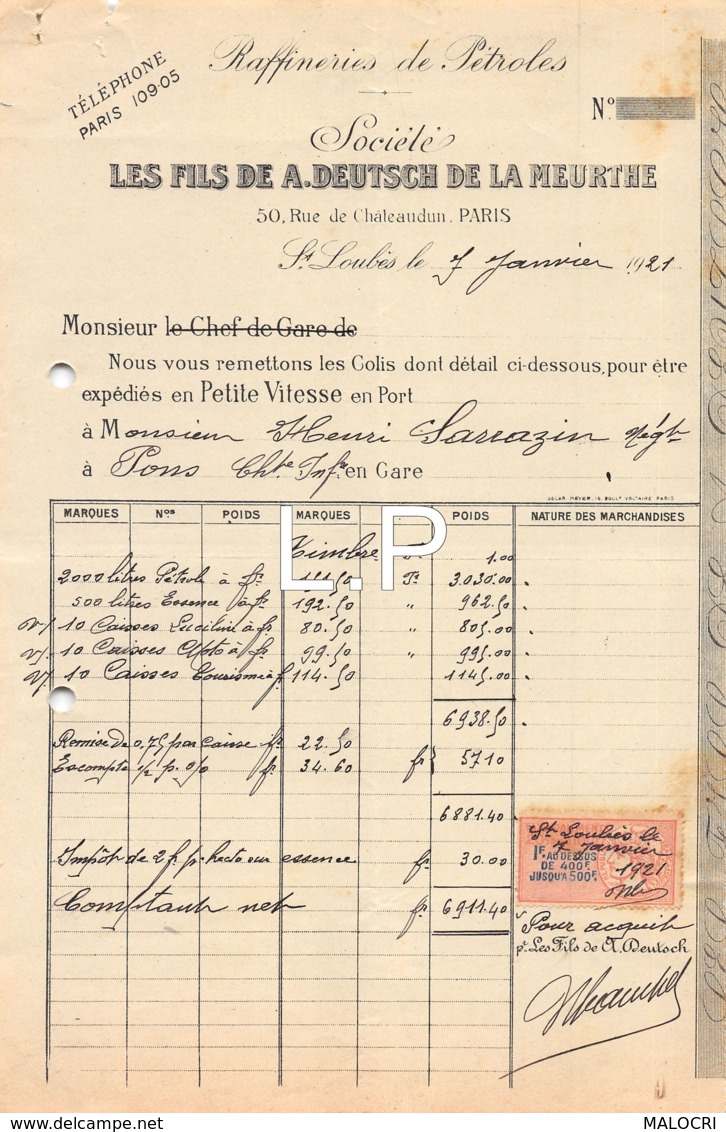 Raffineries de Pétroles
TÉLÉPHONE
PARIS 109-05
N°
Société
LES FILS DE A. DEUTSCH DE LA MEURTHE
50, Rue de Châteaudun, PARIS
St Loubès le 7 Janvier 1921
Monsieur le Chef de Gare de
Nous vous remettons les Colis dont détail ci-dessous, pour être
expédiés en Petite Vitesse en Port
à Monsieur Henri Sarrazin Négt
à Pons Chte Infre en Gare
OSCAR MEYER, 14, BOULD VOLTAIRE PARIS
MARQUES Nos POIDS MARQUES POIDS NATURE DES MARCHANDISES
L.P
Timbre 1.00
2000 litres Pétrole à fr. 151.50 3.030.00
500 litres Essence à fr. 192.50 " 962.50
V/ 10 Caisses Luciline à fr 80.50 " 805.00
V/. 10 Caisses à fr. 99.50 " 995.00
V/ 10 Caisses Tourisme à fr 114.50 1145.00
6938.50
Remise de 0.75 par caisse fr. 22.50
Escompte 1/2 p. o/o fr. 34.60 fr 57.10
6881.40
Impôt de 2 fr. p. hecto sur essence fr 30.00
Comptant net fr 6911.40
St Loubès le
7 Janvier
1921
1F. AU DESSUS
DE 400F
JUSQU'A 500F
Pour acquit
pr Les Fils de A. Deutsch
MALOCRI